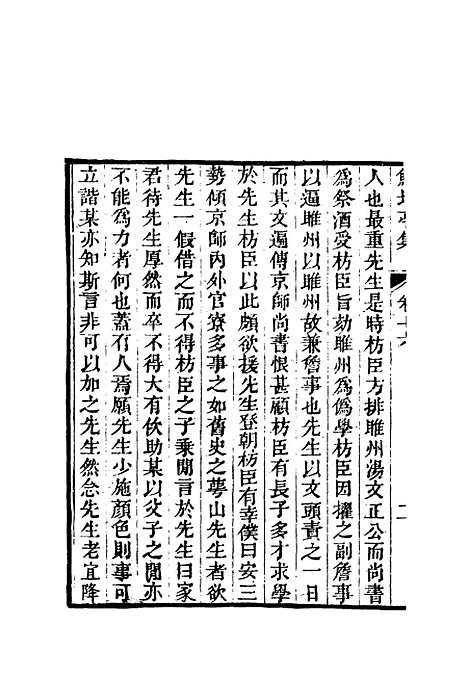 卷十六
二
人也最重先生是時枋臣方排睢州湯文正公而尚書
為祭酒受枋臣旨劾睢州為偽學枋臣因擢之副詹事
以逼睢州以睢州故兼詹事也先生以文頭責之一日
而其文遍傳京師尚書恨甚顧枋臣有長子多才求學
於先生枋臣以此頗欲援先生登朝枋臣有幸僕曰安三
勢傾京師內外官寮多事之如舊史之萼山先生者欲
先生一假借之而不得枋臣之子乘閒言於先生曰家
君待先生厚然而卒不得大有佽助某以父子之閒亦
不能為力者何也蓋有人焉願先生少施顏色則事可
立諧某亦知斯言非可以加之先生然念先生老宜降